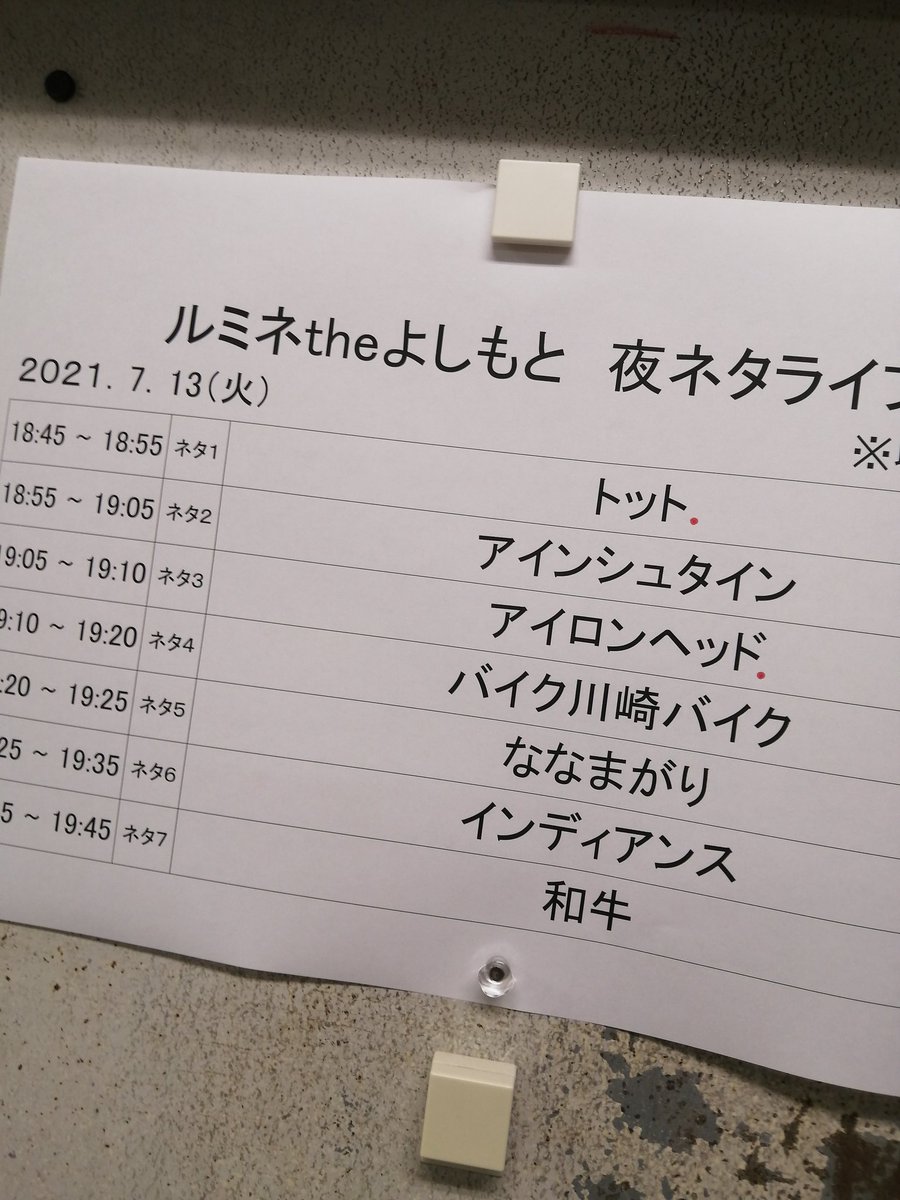 ルミネtheよしもと 夜ネタライブ
2021. 7. 13(火)
※
18:45 ~ 18:55 ネタ1 トット
18:55 ~ 19:05 ネタ2 アインシュタイン
19:05 ~ 19:10 ネタ3 アイロンヘッド
9:10 ~ 19:20 ネタ4 バイク川崎バイク
:20 ~ 19:25 ネタ5 ななまがり
25 ~ 19:35 ネタ6 インディアンス
5 ~ 19:45 ネタ7 和牛